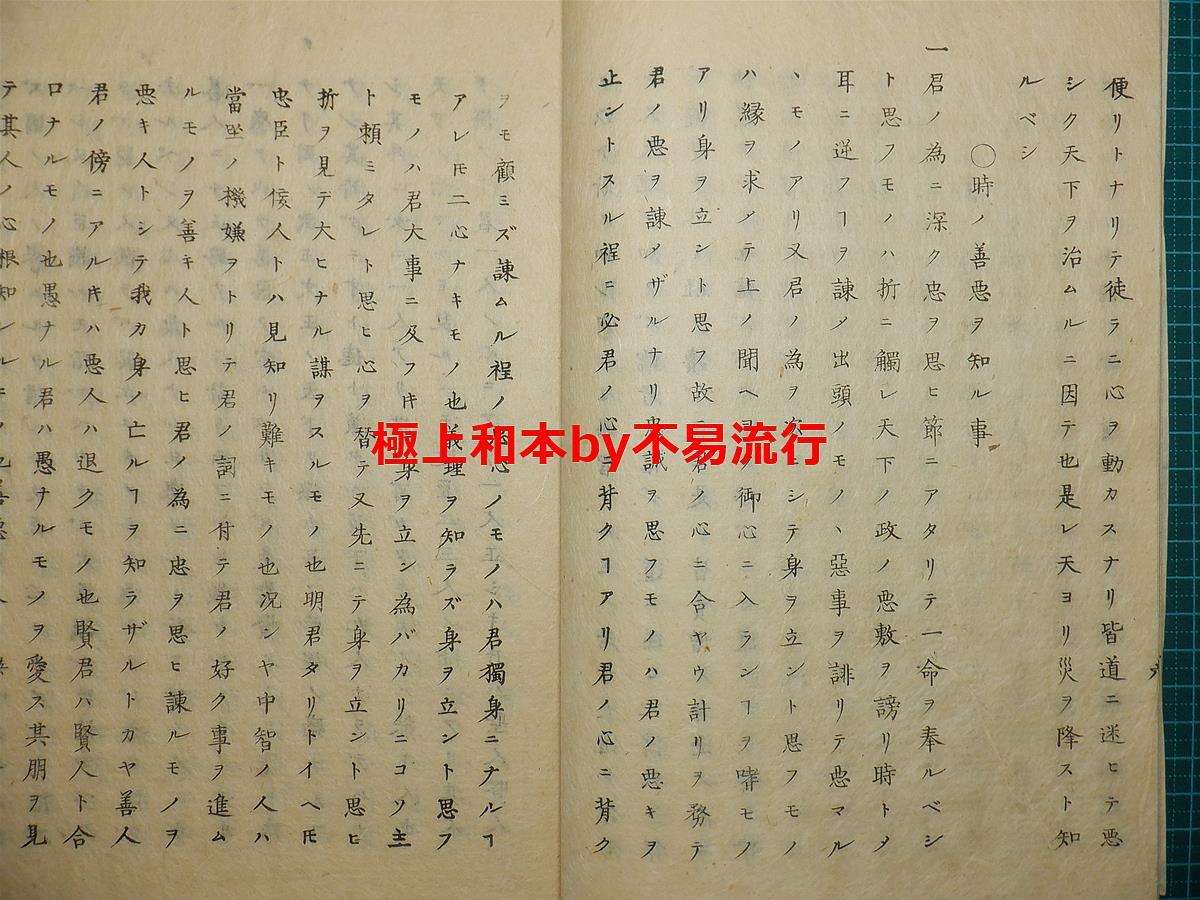 便リトナリテ徒ラニ心ヲ動カスナリ皆道ニ迷ヒテ悪
シク天下ヲ治ムルニ因テ也是レ天ヨリ災ヲ降スト知
ルベシ
〇時ノ善悪ヲ知ル事
一君ノ為ニ深ク忠ヲ思ヒ節ニアタリテ一命ヲ奉ルベシ
ト思フモノハ折ニ觸レ天下ノ政ノ悪敷ヲ謗リ時トメ
耳ニ逆フヿヲ諌メ出頭ノモノヽ惡事ヲ誹リテ悪マル
ヽモノアリ又君ノ為ヲ次ニシテ身ヲ立ント思フモノ
ハ縁ヲ求メテ上ノ聞ヘヨク御心ニ入ランヿヲ嗜モノ
アリ身ヲ立ント思フ故ニ君ノ心ニ合ヤウ計リヲ務テ
君ノ悪ヲ諌メザルナリ忠誠ヲ思フモノハ君ノ悪キヲ
止ントスル程ニ必君ノ心ニ背クヿアリ君ノ心ニ背ク
ヲモ顧ミズ諌ムル程ノ心ノモノハ君獨身ニナルヿ
アレ𪜈二心ナキモノ也義理ヲ知ラズ身ヲ立ント思フ
モノハ君大事ニ及フキ身ヲ立ン為バカリニコソ主
ト頼ミタレト思ヒ心ヲ替テ又先ニテ身ヲ立ント思ヒ
折ヲ見デ大ヒナル謀ヲスルモノ也明君タリトイヘ𪜈
忠臣ト侫人トハ見知リ難キモノ也况ンヤ中智ノ人ハ
當坐ノ機嫌ヲトリテ君ノ詞ニ付テ君ノ好ク事ヲ進ム
ルモノヲ善キ人ト思ヒ君ノ為ニ忠ヲ思ヒ諌ルモノヲ
悪キ人トシテ我カ身ノ亡ルヿヲ知ラザルトカヤ善人
君ノ傍ニアルキハ悪人ハ退クモノ也賢君ハ賢人ト合
口ナルモノ也愚ナル君ハ愚ナルモノヲ愛ス其朋ヲ見
テ其人ノ心根知ンル
極上和本by不易流行